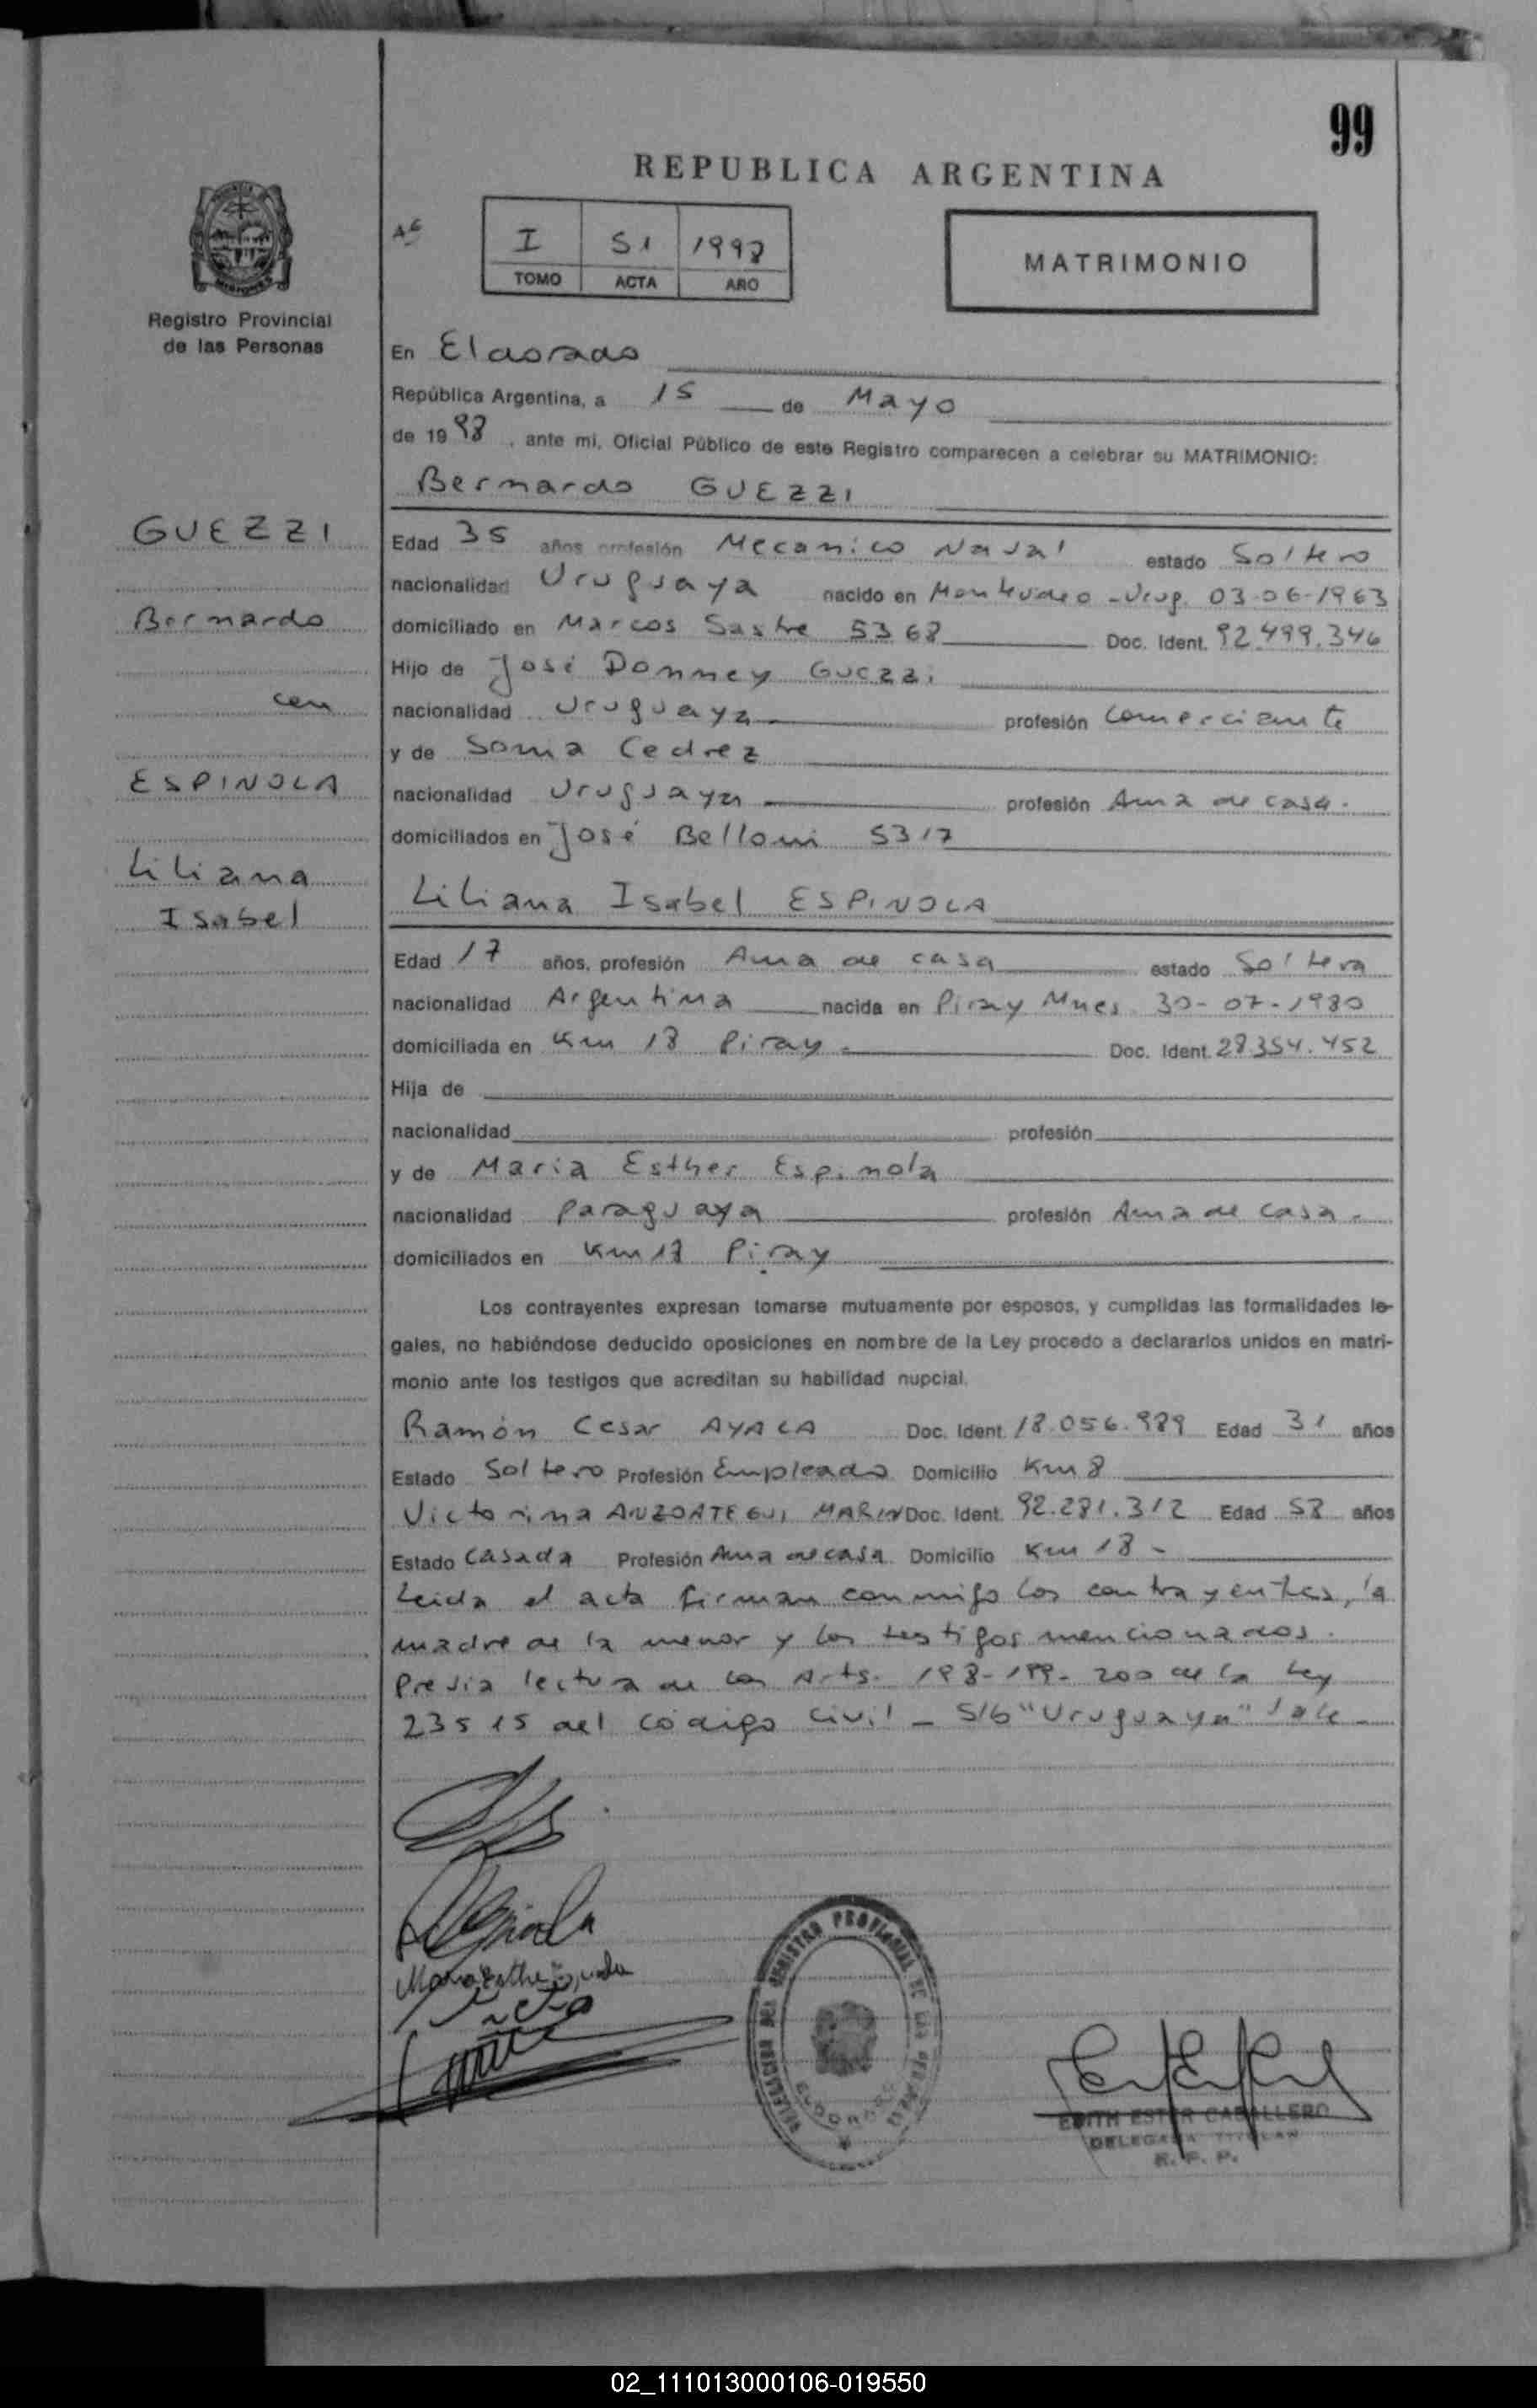 99
REPUBLICA ARGENTINA
I 51 1998
TOMO ACTA AÑO
MATRIMONIO
Registro Provincial
de las Personas
En Eldorado
República Argentina, a 15 de Mayo
de 1998, ante mi, Oficial Público de este Registro comparecen a celebrar su MATRIMONIO:
Bernardo GUEZZI
GUEZZI
Bernardo
con
ESPINOLA
Liliana
Isabel
Edad 35 años profesión Mecanico Naval estado Soltero
nacionalidad Uruguaya nacido en Montevideo - Urug. 03-06-1963
domiciliado en Marcos Sastre 5368 Doc. Ident. 92.499.346
Hijo de José Donney Guezzi
nacionalidad Uruguaya profesión Comerciante
y de Sonia Cedrez
nacionalidad Uruguaya profesión Ama de casa.
domiciliados en José Belloni 5317
Liliana Isabel ESPINOLA
Edad 17 años, profesión Ama de casa estado Soltera
nacionalidad Argentina nacida en Piray Mnes. 30-07-1980
domiciliada en Km 18 Piray - Doc. Ident. 28.354.452
Hija de
nacionalidad profesión
y de Maria Esther Espinola
nacionalidad Paraguaya profesión Ama de casa -
domiciliados en Km 18 Piray
Los contrayentes expresan tomarse mutuamente por esposos, y cumplidas las formalidades le-
gales, no habiéndose deducido oposiciones en nombre de la Ley procedo a declararlos unidos en matri-
monio ante los testigos que acreditan su habilidad nupcial.
Ramón Cesar AYALA Doc. Ident. 18.056.989 Edad 31 años
Estado Soltero Profesión Empleado Domicilio Km 8
Victorina ANZOATEGUI MARIN Doc. Ident. 92.281.312 Edad 58 años
Estado Casada Profesión Ama de casa Domicilio Km 18 -
Leida el acta firman conmigo los contrayentes, la
madre de la menor y los testigos mencionados.
Previa lectura de los Arts. 198-199-200 de la Ley
23515 del código civil - S/b "Uruguaya" Vale
Maria Esther Espinola
DELEGACION DEL REGISTRO PROVINCIAL DE LAS PERSONAS
ELDORADO
EDITH ESTER CABALLERO
DELEGADA TITULAR
R. P. P.
02_111013000106-019550